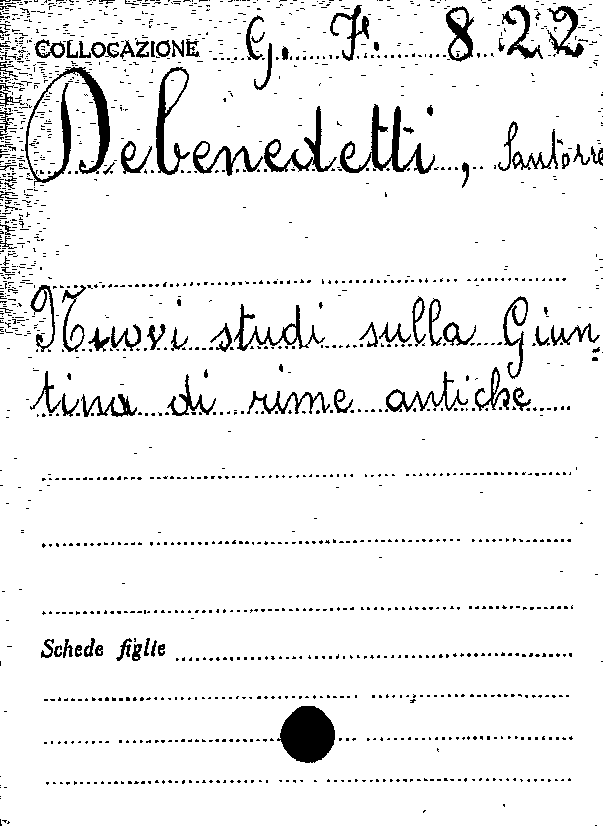 COLLOCAZIONE G. F. 822
Debenedetti, Santorre
Nuovi studi sulla Giun=
tina di rime antiche
Schede figlie